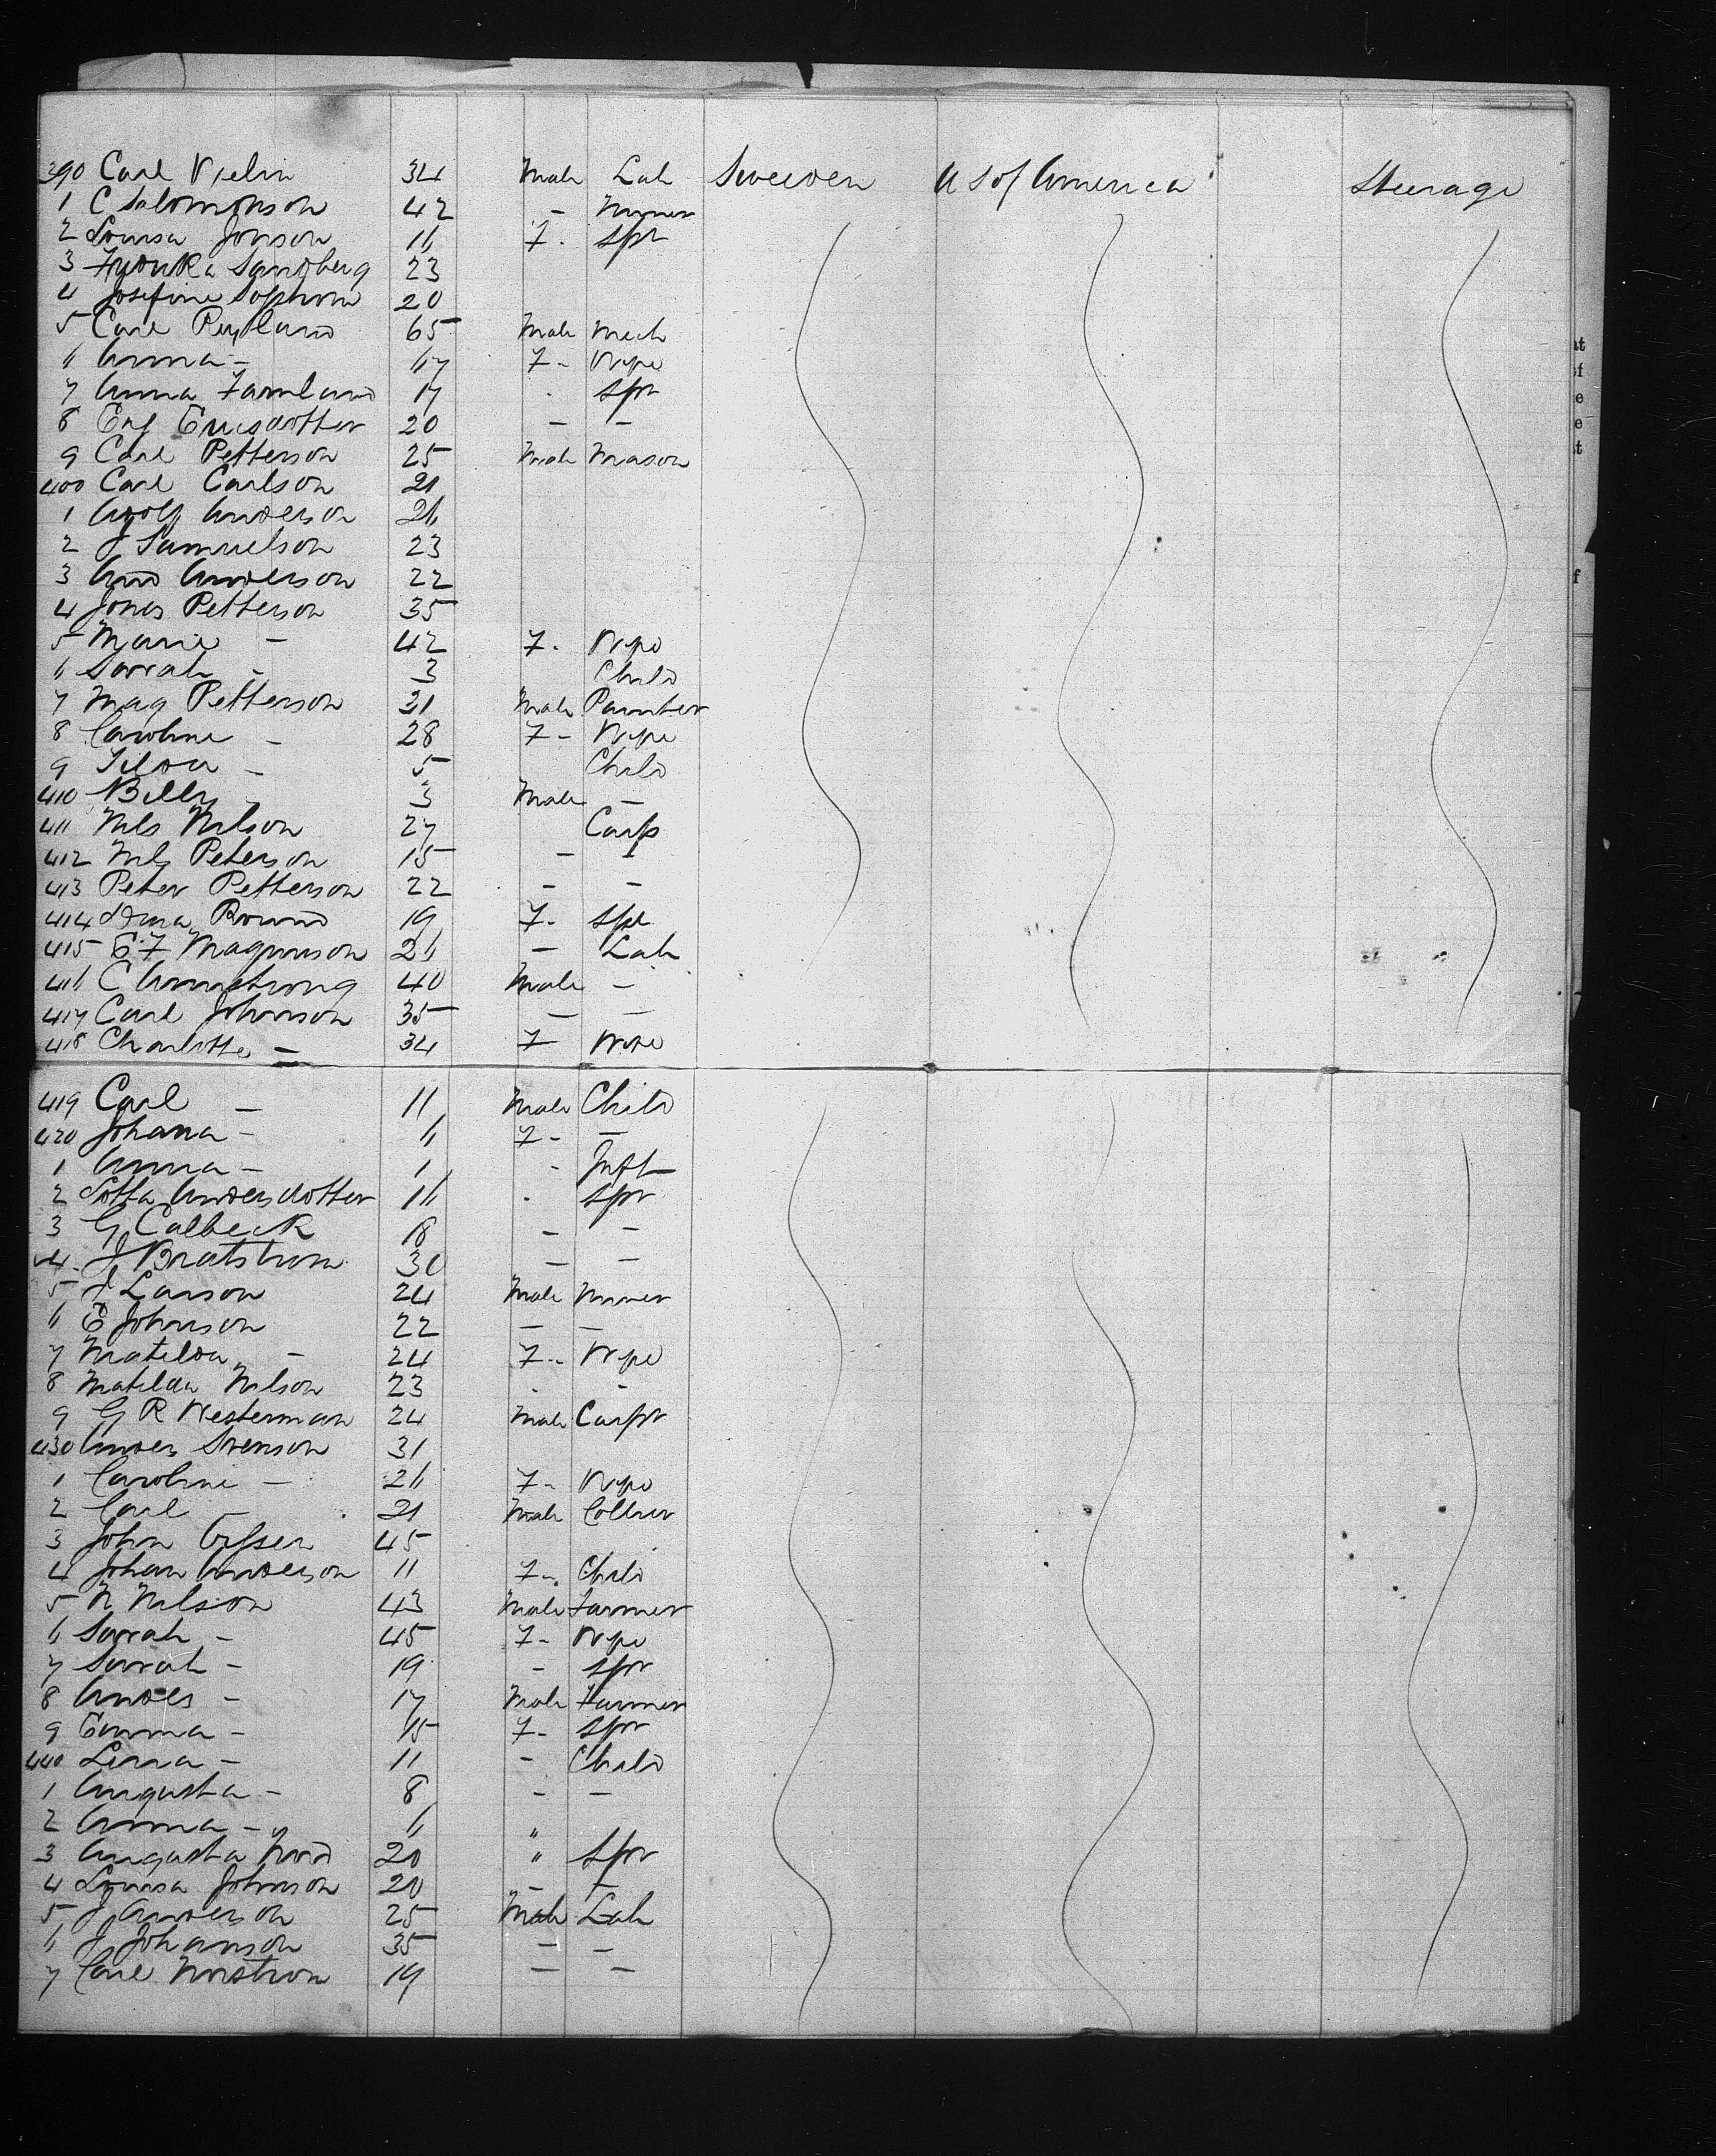 390 Carl Velin 34 Male Lab Sweden U S of America Steerage
1 C Salomonson 42 - Miner
2 Louisa Jonson 16 F. Spr
3 Fredrika Sandberg 23
4 Josefine 20
5 Carl 65 Male Mech
6 Anna - 67 F - Wife
7 Anna Farmland 17 . Spr
8 Eng Ericsdotter 20 - -
9 Carl Petterson 25 Male Mason
400 Carl Carlson 21
1 Adolf Anderson 26
2 J Samuelson 23
3 And Anderson 22
4 Jonas Petterson 35
5 Marie - 42 F. Wife
6 Sarrah - 3 Child
7 Mag Petterson 31 Male Painter
8 Caroline - 28 F - Wife
9 Tilda - 5 Child
410 Billy - 3 Male -
411 Nils Nilson 27 Carp
412 Nils Peterson 15 - -
413 Peter Petterson 22 - -
414 19 F. Spr
415 C. F Magnuson 26 - Lab
416 C Armstrong 40 Male -
417 Carl Johnson 35 - -
418 Charlotte - 34 F Wife
419 Carl - 11 Male Child
420 Johana - 6 F - -
1 Anna - 1 - Inft
2 Lotta Andersdotter 16 . Spr
3 G Calbeck 18 - -
4. J Bratstrom 30 - -
5 J Larson 24 Male Miner
6 E Johnson 22 - -
7 Matilda - 24 F - Wife
8 Matilda Nilson 23 . -
9 G R Westerman 24 Male Carpr
430 Anders Svenson 31
1 Caroline - 26 F - Wife
2 Carl - 21 Male Collier
3 John 45
4 Johan Anderson 11 F - Child
5 N Nilson 43 Male Farmer
6 Sarrah - 45 F - Wife
7 Sarrah - 19 - Spr
8 Andes - 17 Male Farmer
9 Emma - 15 F - Spr
440 Lena - 11 - Child
1 Augusta - 8 - -
2 Anna - 6 "
3 Augusta Nord 20 " Spr
4 Louisa Johnson 20 - -
5 J Anderson 25 Male Lab
6 J Johanson 35 - -
7 Carl Norstrom 19 - -